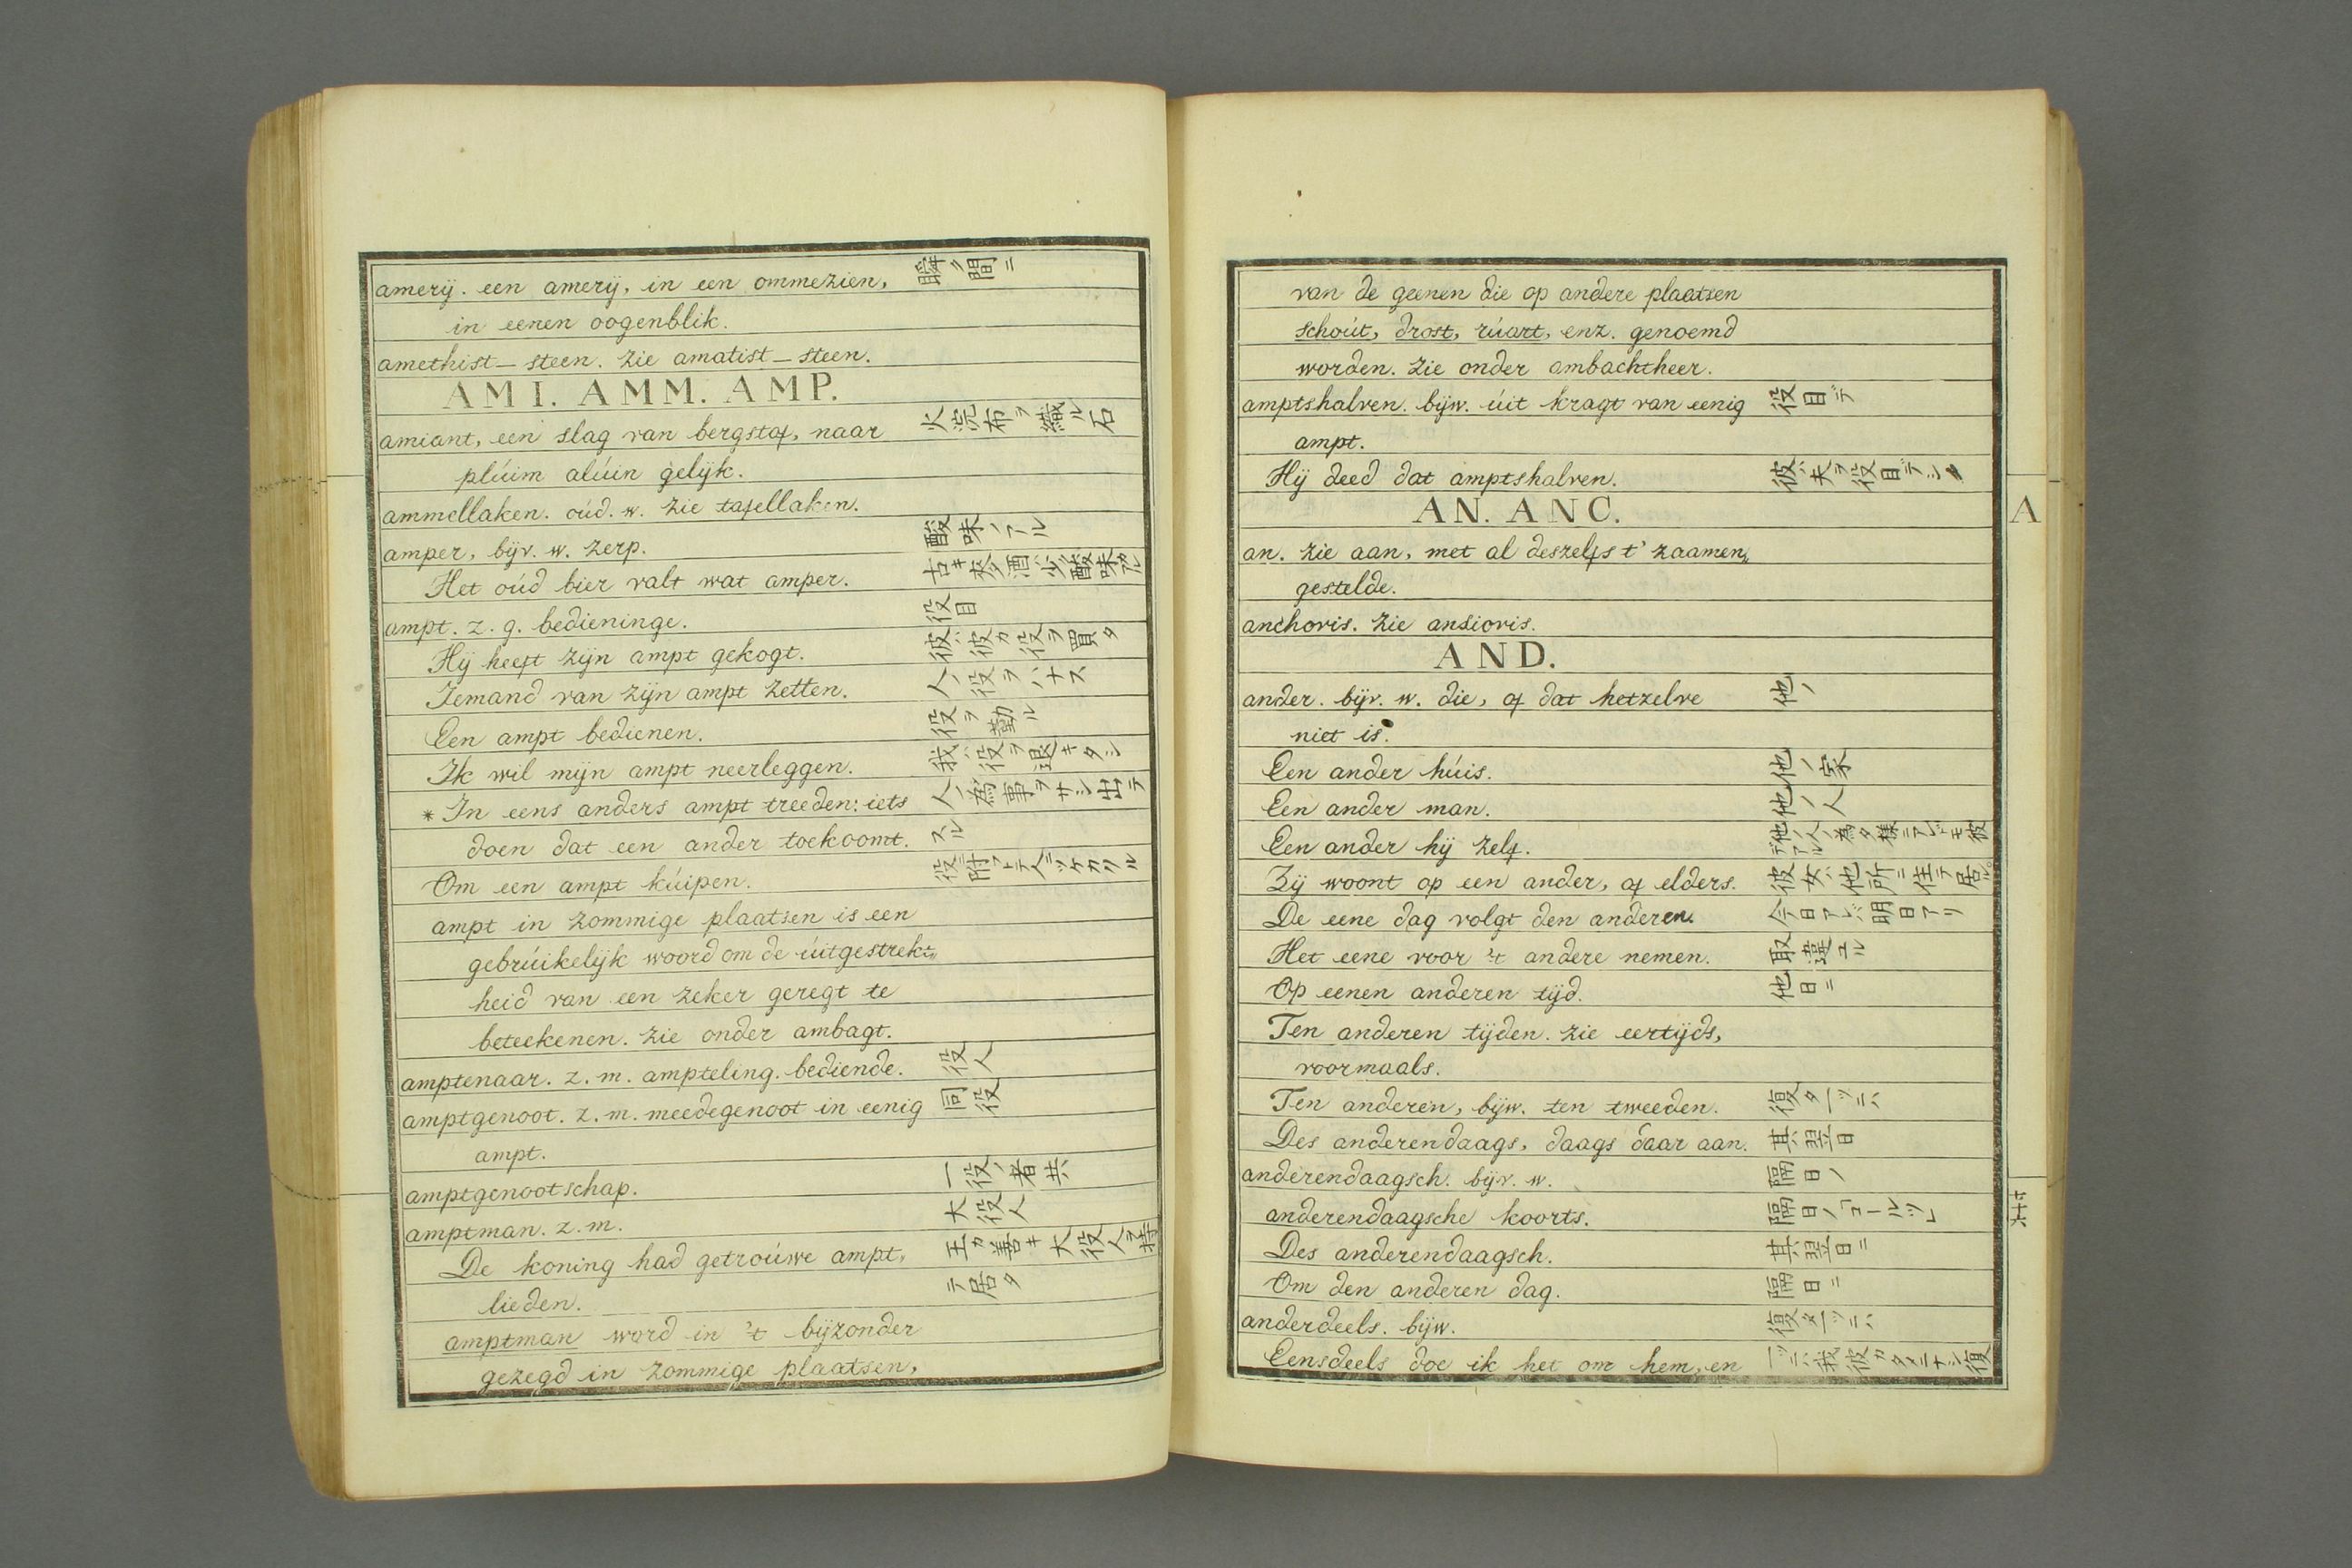 amerij. een amerij, in een ommezien, 瞬ノ間ニ
in eenen oogenblik.
amethist-steen. zie amatist-steen.
AMI. AMM. AMP.
amiant, een slag van bergstof, naar 火浣布ヲ織ル石
plúim alúin gelijk.
ammellaken. oúd. w. zie tafellaken.
amper, bijv. w. zerp. 酸味ノアル
Het oúd bier valt wat amper. 古キ麥酒ハ少シ酸味ガアル
ampt. z. g. bedieninge. 役目
Hij heeft zijn ampt gekogt. 彼ハ彼カ役ヲ買タ
Iemand van zijn ampt zetten. 人ノ役ヲハナス
Een ampt bedienen. 役ヲ勤ル
Ik wil mijn ampt neerleggen. 我ハ役ヲ退キタシ
* In eens anders ampt treeden: iets 人ノ為事ヲサシ出テ
doen dat een ander toekoomt. スル
Om een ampt kúipen. 役
ampt in zommige plaatsen is een
gebrúikelijk woord om de úitgestrekt„
heid van een zeker geregt te
beteekenen. zie onder ambagt.
amptenaar. z. m. ampteling. bediende. 役人
amptgenoot. z. m. meedegenoot in eenig 同役
ampt.
amptgenootschap. 一役ノ者共
amptman. z. m. 大役人
De koning had getroúwe ampt„ 王カ善キ大役人ヲ持
lieden. テ居タ
amptman word in 't bijzonder
gezegd in zommige plaatsen,
van de geenen die op andere plaatsen
schoút, drost, rúart, enz. genoemd
worden. zie onder ambachtheer.
amptshalven. bijw. úit kragt van eenig 役目デ
ampt.
Hij deed dat amptshalven. 彼ハ夫ヲ役目デシタ
AN. ANC.
A
an. zie aan, met al deszelfs t' zaamen„
gestelde.
anchoris. zie ansioris.
AND.
ander. bijv. w. die, of dat hetzelve 他ノ
niet is.
Een ander húis. 他ノ家
Een ander man. 他ノ人
Een ander hij zelf. 他ノ人ノ為タ様ニアレトモ彼デアル
Zij woont op een ander, of elders. 彼女ハ他所ニ住テ居ル
De eene dag volgt den anderen. 今日アレハ明日アリ
Het eene voor 't andere nemen. 取違ユル
Op eenen anderen tijd. 他日ニ
Ten anderen tijden. zie eertijds,
voormaals.
Ten anderen, bijw. ten tweeden. 復タ一ツニハ
Des anderendaags, daags daar aan. 其翌日
anderendaagsch. bijv. w. 隔日ノ
anderendaagsche koorts. 隔日ノ「コールツ」
Des anderendaagsch. 其翌日ニ
Om den anderen dag. 隔日ニ
anderdeels. bijw. 復タ一ツニハ
Eensdeels doe ik het om hem, en 一ツニハ我彼カタメニナシ復